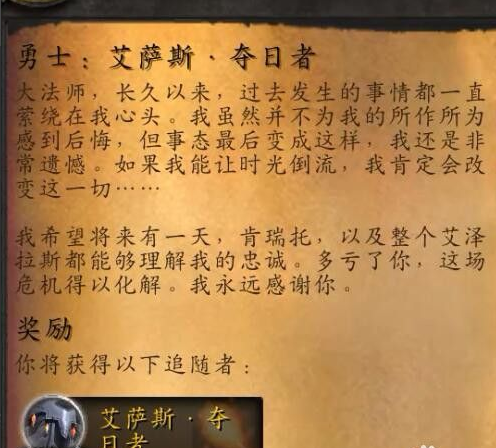 勇士：艾萨斯·夺日者
大法师，长久以来，过去发生的事情都一直
萦绕在我心头。我虽然并不为我的所作所为
感到后悔，但事态最后变成这样，我还是非
常遗憾。如果我能让时光倒流，我肯定会改
变这一切……
我希望将来有一天，肯瑞托，以及整个艾泽
拉斯都能够理解我的忠诚。多亏了你，这场
危机得以化解。我永远感谢你。
奖励
你将获得以下追随者：
艾萨斯·夺
日者